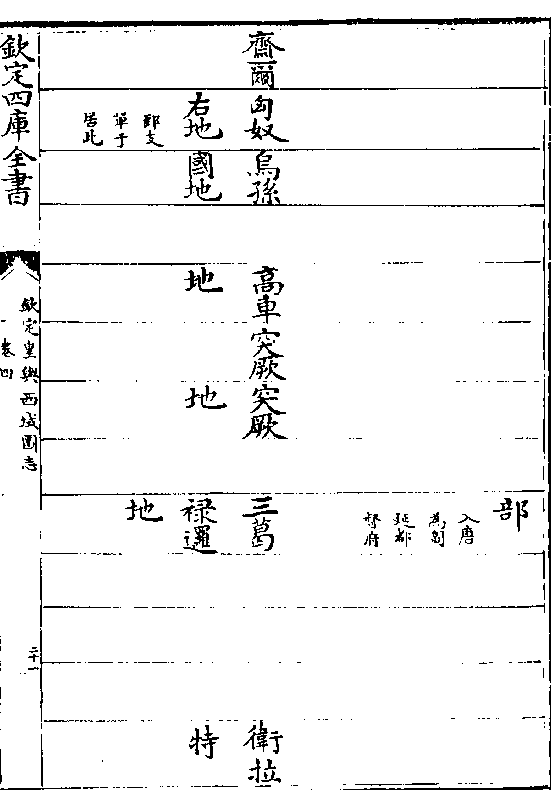 部
入唐
為匐
延都
督府
齋爾
匈奴
右地
郅支
單于
居此
烏孫
國地
高車
地
突厥
突厥
地
三葛
禄邏
地
衛拉
特
欽定四庫全書
欽定皇輿西域圖志
卷四
二十一